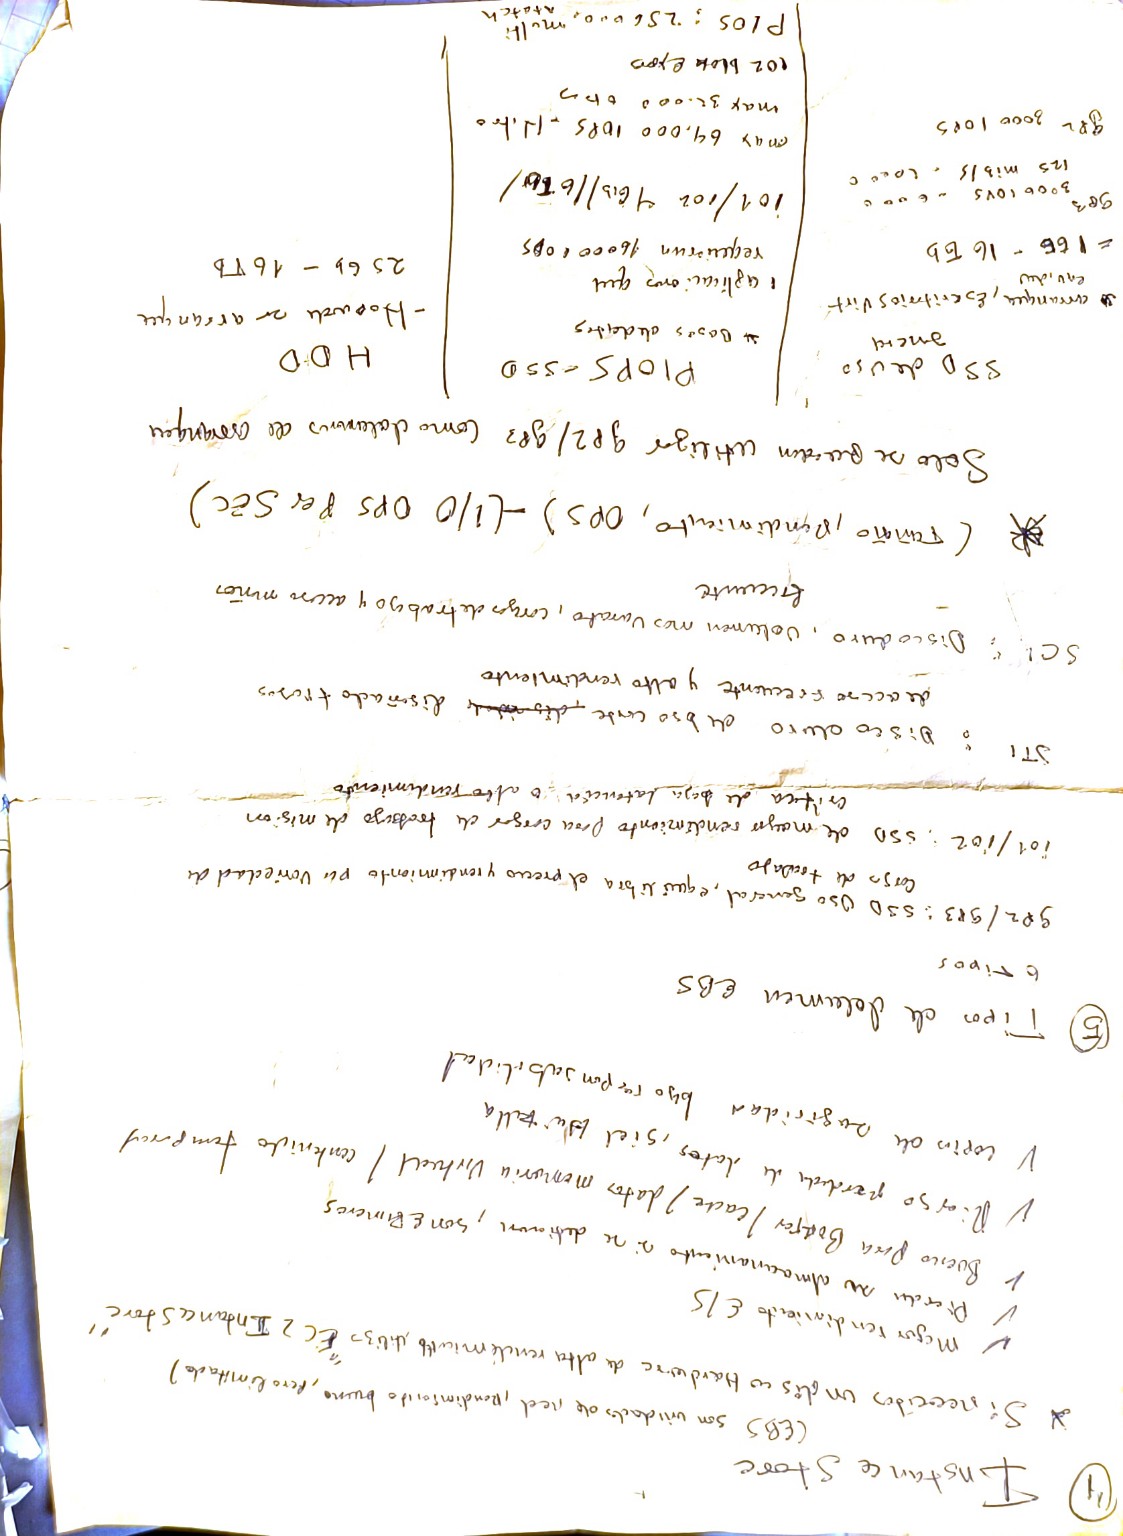 4) Instance Store
(EBS son unidades de red, rendimiento bueno, pero limitado)
* Si necesitas un disco Hardware de alta rendimiento, utiliza "EC2 Intance Store"
✓ Mejor rendimiento E/S
✓ Pierden su almacenamiento si se detienen, son Efimeros
✓ Bueno para Buffer / cache / datos memoria virtual / contenido temporal
✓ Riesgo perdida de datos, si el falla
✓ copias de bajo responsabilidad
5) Tipos de volumen EBS
6 Tipos
gp2/gp3: SSD Uso general, equilibra el precio y rendimiento pa variedad de
carga de trabajo
io1/io2: SSD de mayor rendimiento para cargas de trabajo de mision
critica de baja latencia o alto rendimiento
ST1 : Disco duro de bso coste, diseñado
de acceso frecuente y alto rendimiento
SC1 : Disco duro, Volumen mas varato, cargas de trabajo y acceso menos
frecuente
* (Tamaño, Rendimiento, OPS) - (I/O OPS Per Sec)
Solo se pueden utilizar gp2/gp3 como volumenes de arranque
SSD de uso
general
* arranque, Escritorios virt
= 1GB - 16 Tb
gp3 3000 IOPS - 6000
125 mib/s - 1000
gp2 3000 IOPS
PIOPS - SSD
* Bases de datos
* aplicaciones que
requieran 16000 iops
io1/io2 4Gib/16Tb/
max 64,000 IOPS - Nitro
max 32.000 otros
io2 block Express
PIOS : 256000, multi
attach
HDD
- No puede se arranque
25Gb - 16Tb